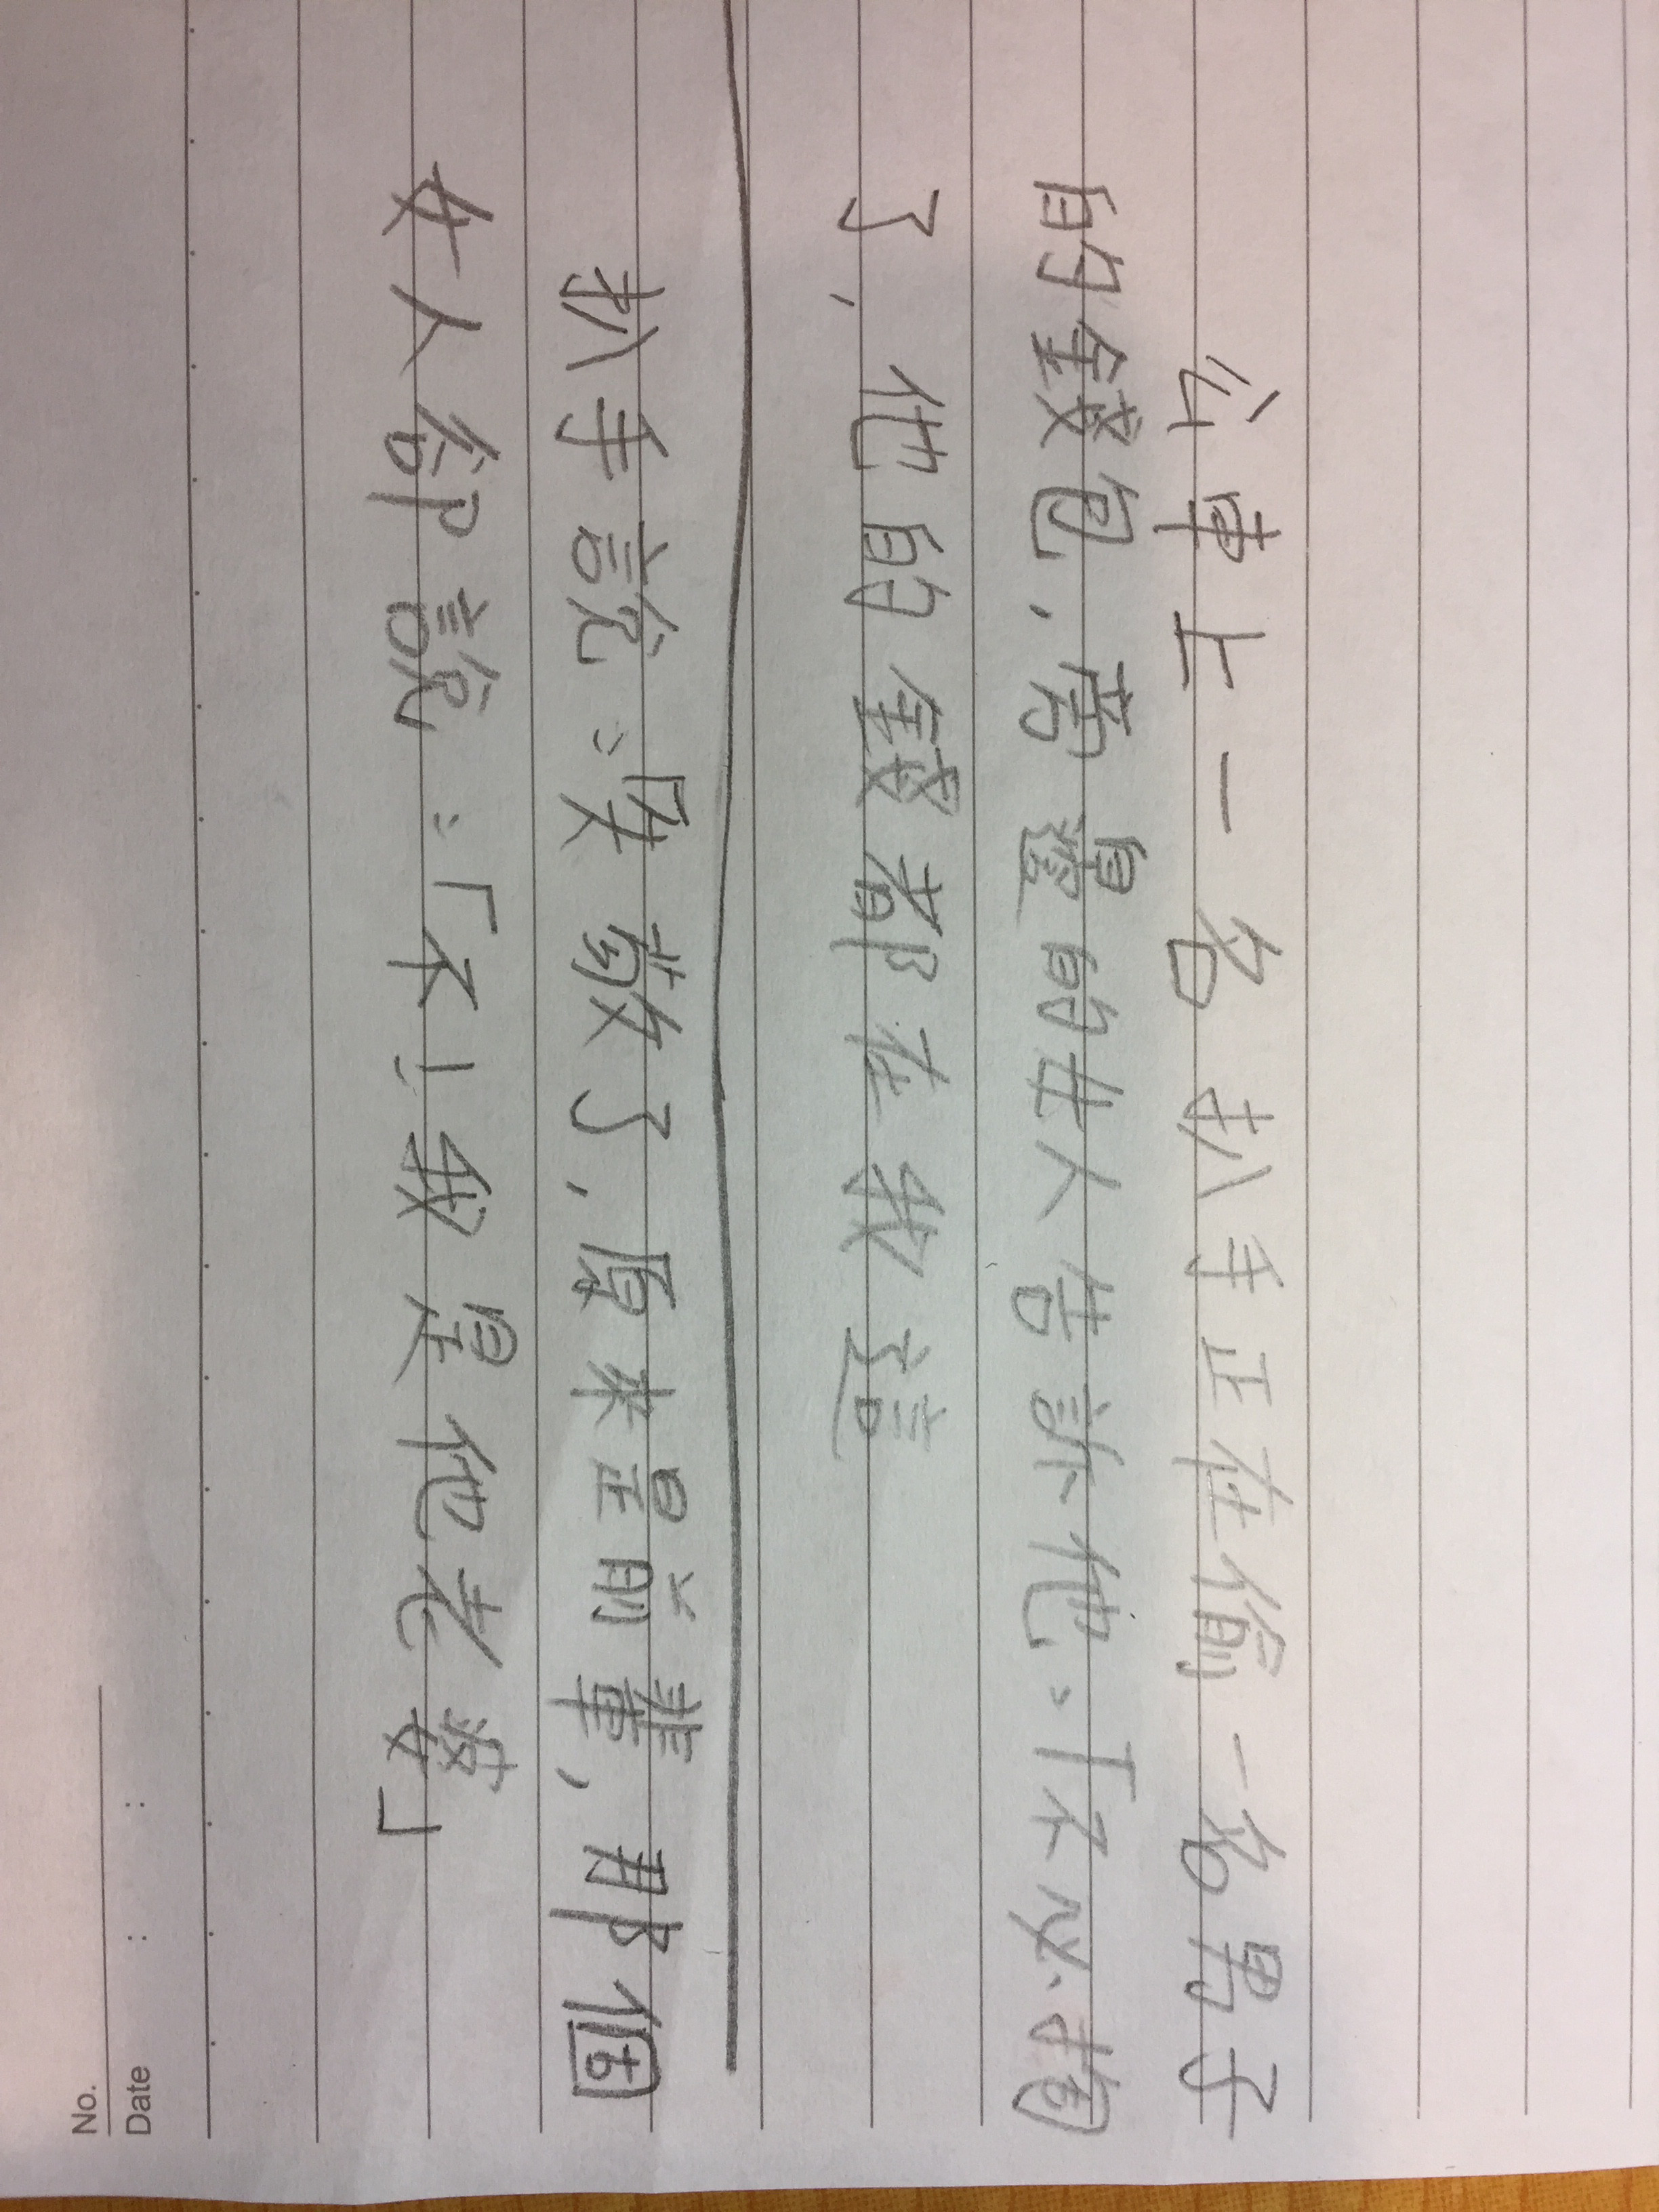 公車上一名扒手正在偷一名男子
的錢包,旁邊的女人告訴他:「不必掏
了,他的錢都在我這
扒手說:「失敬了,原來是前輩,那個
女人卻說:「不!我是他老婆」
No.
Date : :